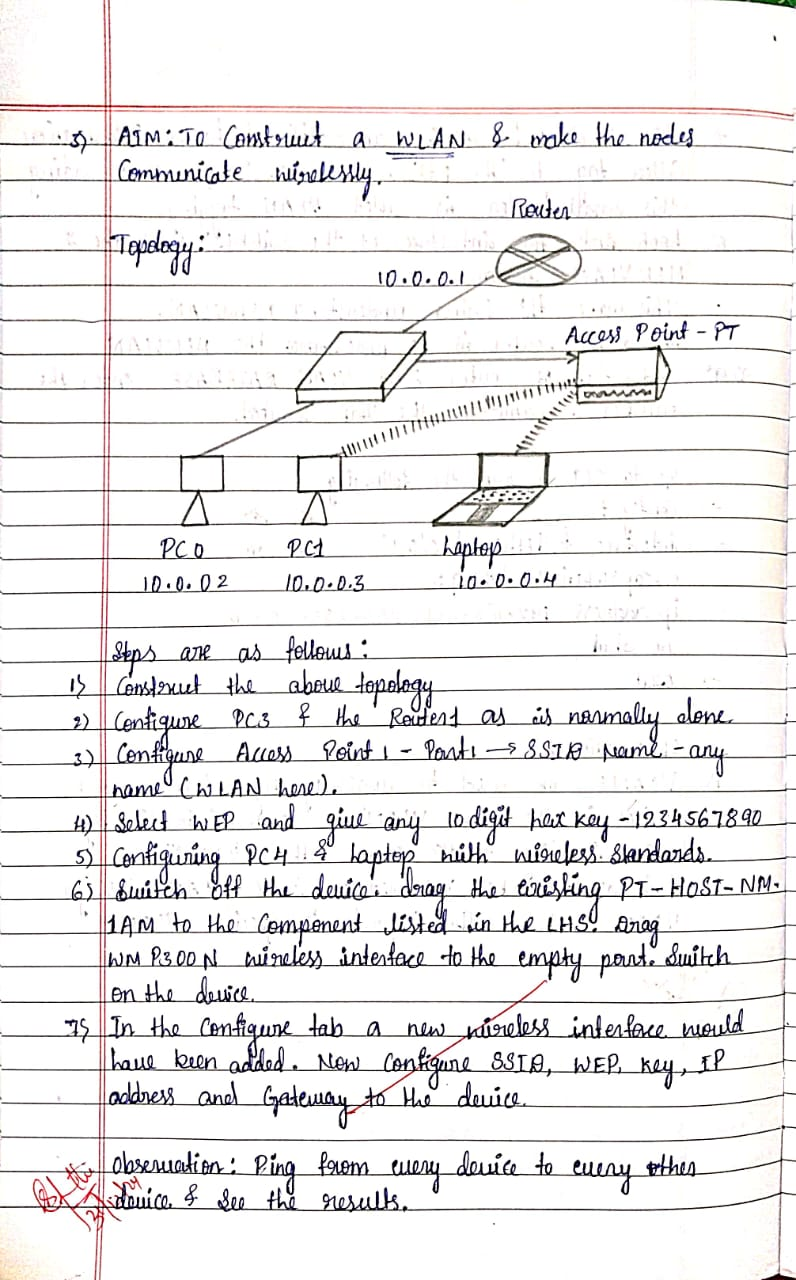 3). AIM: To Construct a WLAN & make the nodes
Communicate wirelessly.
Router
Topology:
10.0.0.1
Access Point - PT
PC0 PC1 Laptop
10.0.02 10.0.0.3 10.0.0.4
Steps are as follows:
1) Construct the above topology
2) Configure PC3 & the Router1 as is normally done.
3) Configure Access Point 1 - Port1 → SSID Name - any
name (WLAN here).
4) Select WEP and give any 10 digit hex key - 1234567890
5) Configuring PC4 & Laptop with wireless standards.
6) Switch off the device. drag the existing PT-HOST-NM-
1AM to the Component listed in the LHS. Drag
WMP300N wireless interface to the empty port. Switch
on the device.
7) In the Configure tab a new wireless interface would
have been added. Now Configure SSID, WEP, Key, IP
address and Gateway to the device.
Observation: Ping from every device to every other
device & see the results.